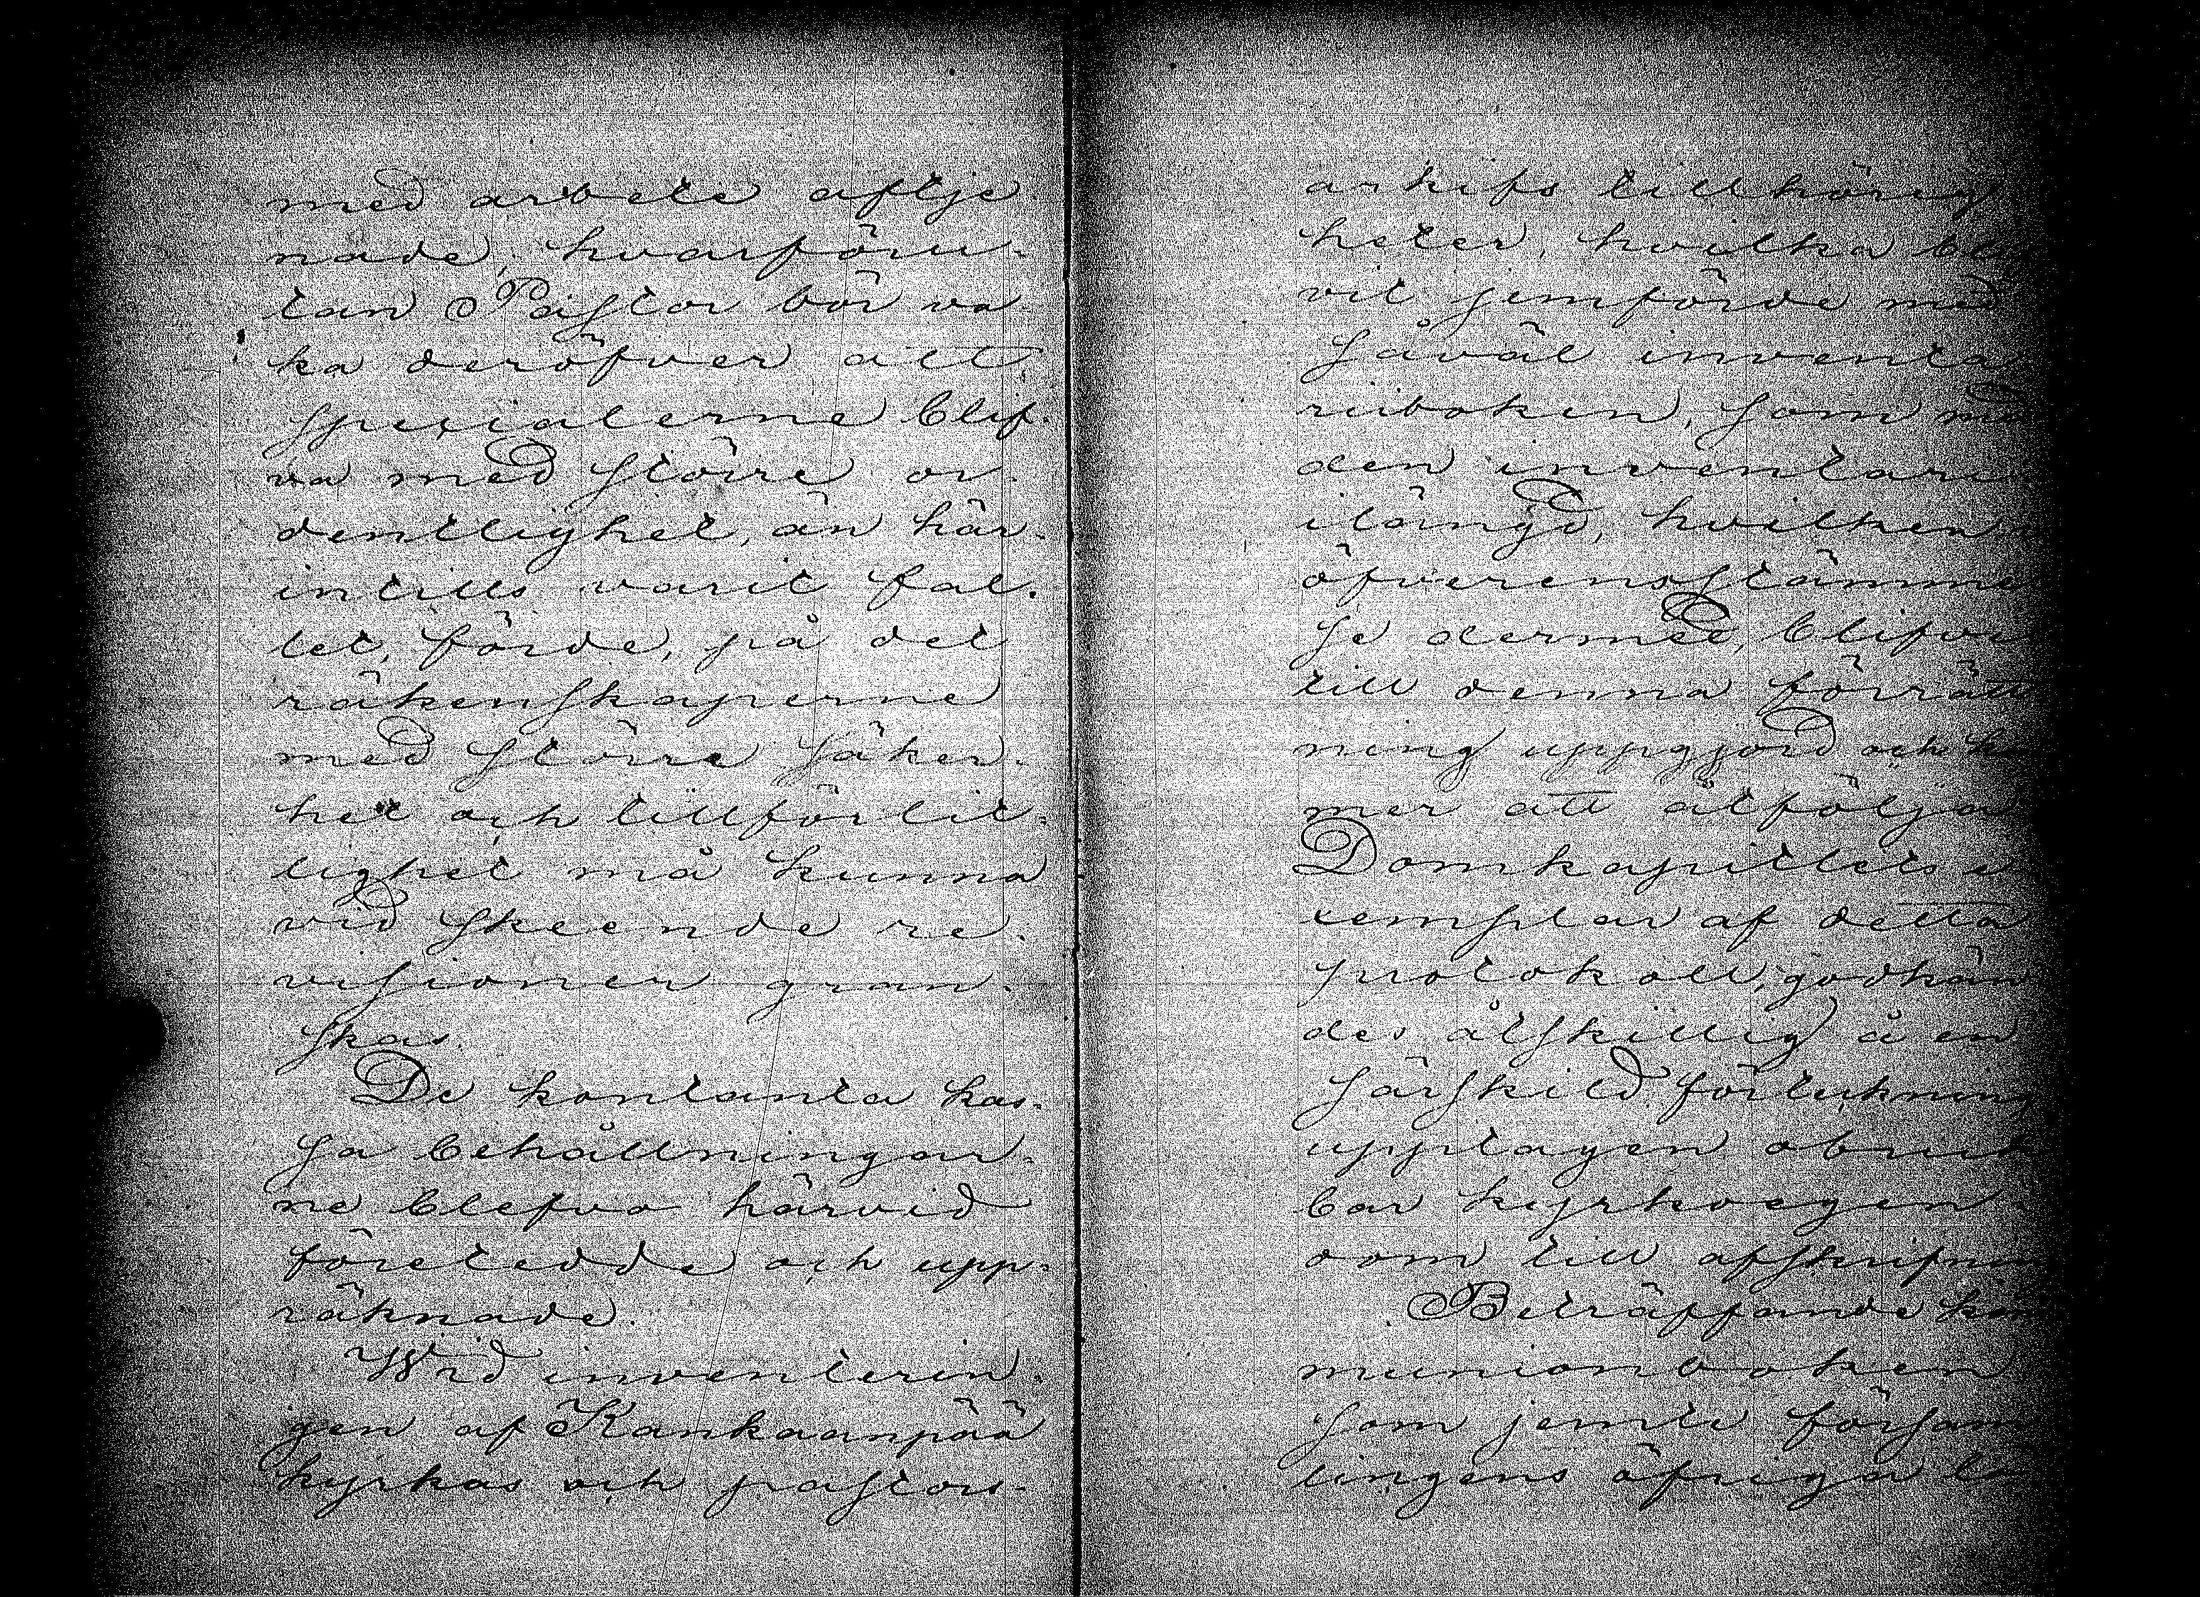 med arbete aftje
nade, hvarföru-
tan Pastor bör va
ka deröfver att
specialerne blif-
va med större or-
dentlighet, än här-
intills varit fal-
let, förde, på det
räkenskaperne
med större säker-
het och tillförlit-
lighet må kunna
vid skeende re-
visioner gran-
skas.
De kontanta kas-
sa behållningar-
ne blefvo härvid
företedde och upp-
räknade.
Wid inventerin-
gen af Kankaanpää
kyrkas och pastors-
arkifs tillhörig
heter, hvilka bli
vit jemförde med
såväl inventa
rieboken, som med
den inventari
ilängd, hvilken
öfverensstämme
se dermed, blifvit
till denna förrätt
ning uppgjord och k
mer att åtfölja
Domkapitlets e
xemplar af detta
protokoll, godkän
des åtskillig å en
särskild förteckning
upptagen obruk
bar kyrkoegen
dom till afskrifnin
Beträffande kom
munionboken
som jemte försam
lingens öfriga